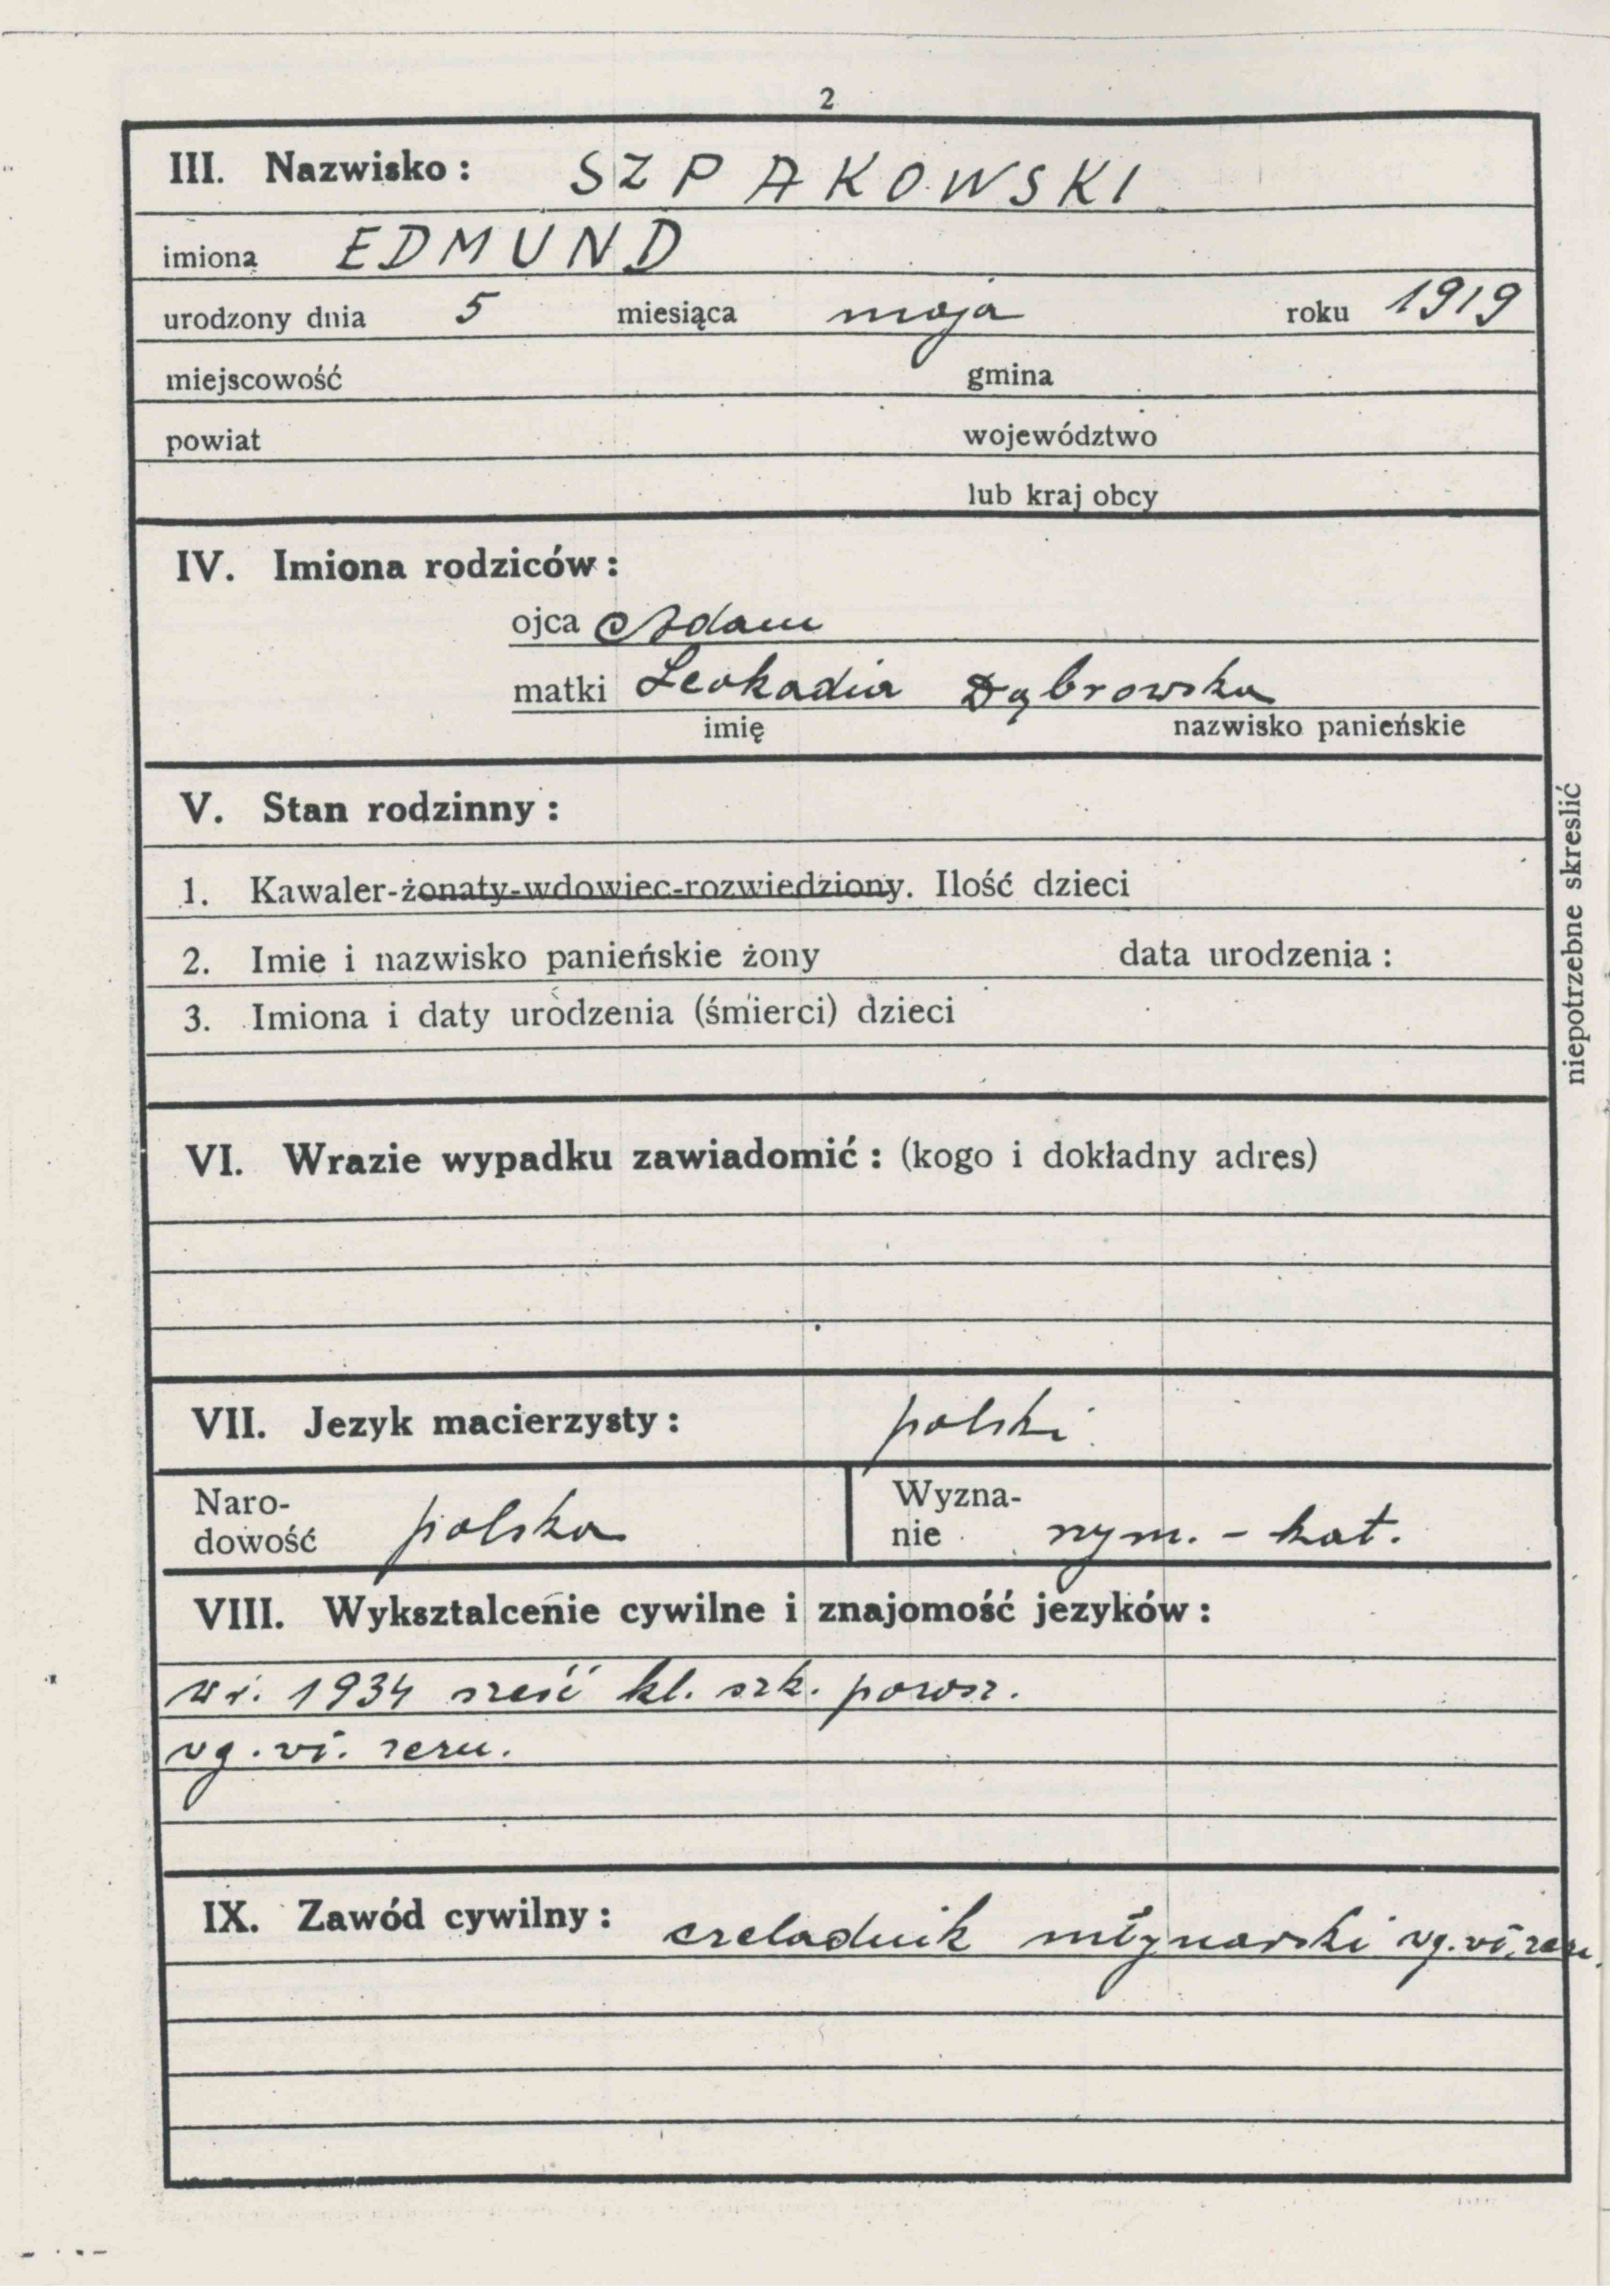 2
III. Nazwisko : SZPAKOWSKI
imiona EDMUND
urodzony dnia 5 miesiąca maja roku 1919
miejscowość gmina
powiat województwo
lub kraj obcy
IV. Imiona rodziców :
ojca Adam
matki Leokadia Dąbrowska
imię nazwisko panieńskie
V. Stan rodzinny :
1. Kawaler-żonaty-wdowiec-rozwiedziony. Ilość dzieci
2. Imie i nazwisko panieńskie żony data urodzenia :
3. Imiona i daty urodzenia (śmierci) dzieci
niepotrzebne skreslić
VI. Wrazie wypadku zawiadomić : (kogo i dokładny adres)
VII. Jezyk macierzysty : polski
Naro- Wyzna-
dowość polska nie rzym. - kat.
VIII. Wyksztalcenie cywilne i znajomość jezyków :
w r. 1934 sześć kl. szk. powsz.
wg. zezn.
IX. Zawód cywilny : czeladnik młynarski wg. zezn.